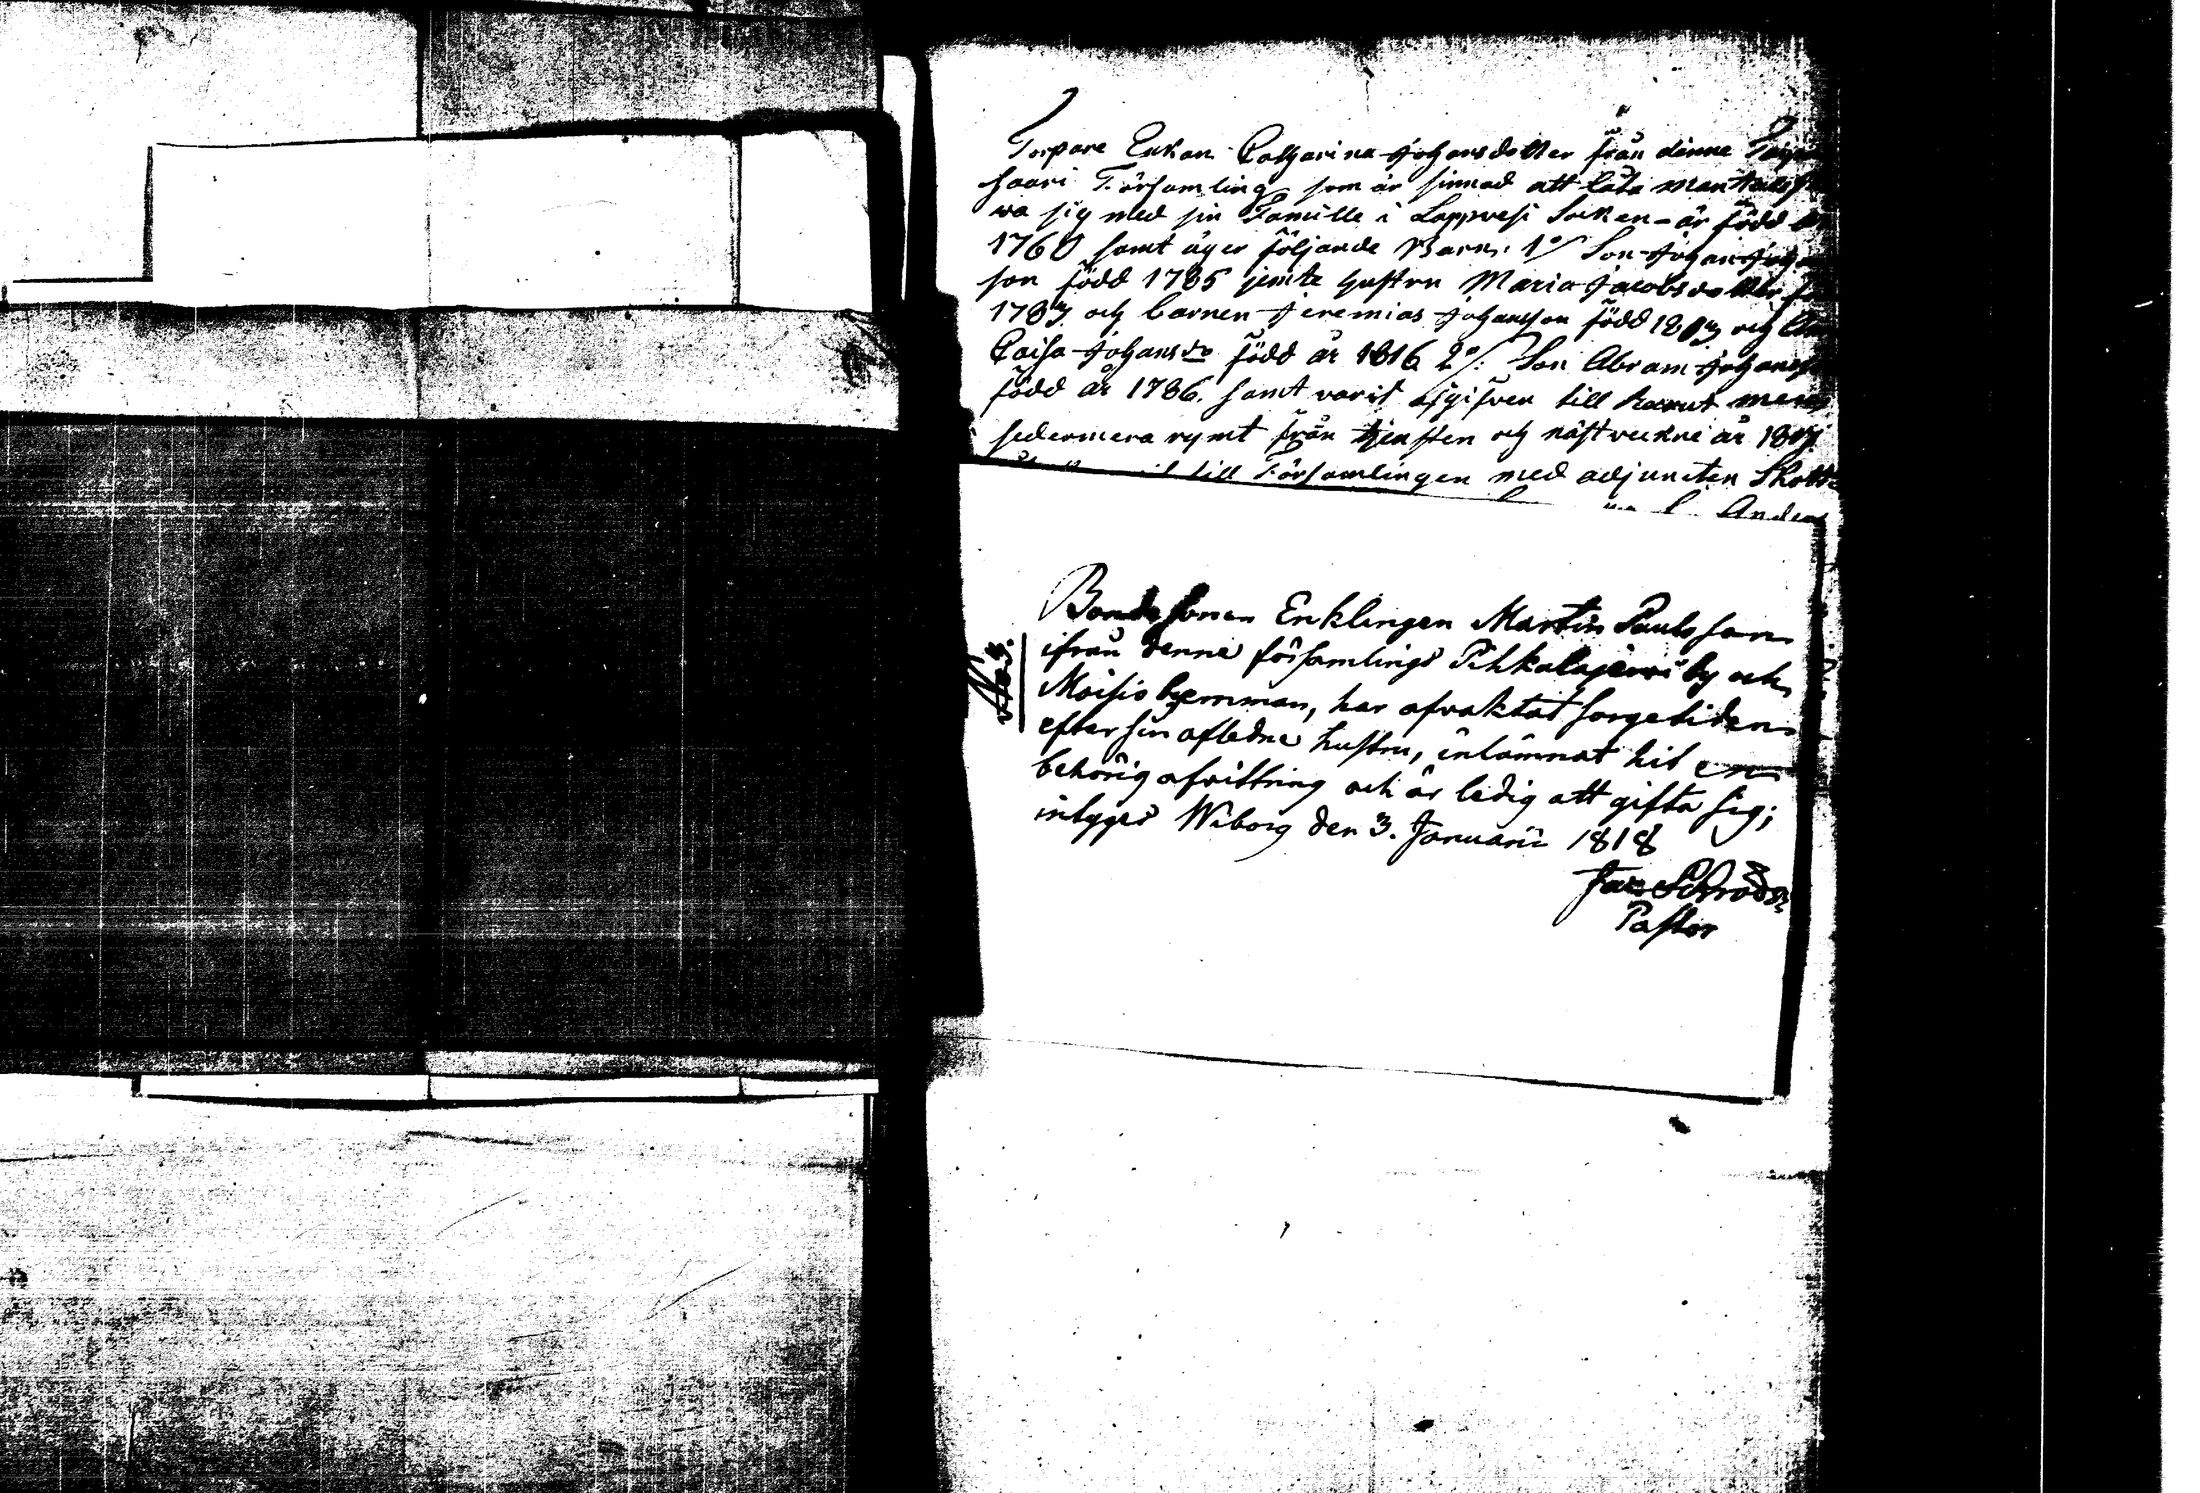 Torpare Enkan Catharina Johansdotter från denne
saari Församling som är sinnad att låta mantals
va sig med sin Famille i Lappvesi Socken - är född
1760 samt äger följande Barn: 1o/ Son Johan Joh
son född 1785 jemte hustru Maria Jacobsdotter
1787 och barnen Jeremias Johansson född 1803 och
Caisa Johansdr född år 1816 2o/: Son Abram Johans
född år 1786. samt varit afgifven till men
sedermera rymt från tjensten och näst vekne år
till Församlingen med adjuncten
Anders
No 3.
Bondesonen Enklingen Martin Paulsson
ifrån denne församlings Pihkalajerwi by och
Moisio hemman, har afvaktat sorgetiden
efter sin aflidne hustru, inlämnat hit en
behörig afvittring och är ledig att gifta sig;
intygas Wiborg den 3. Januarii 1818
Pastor